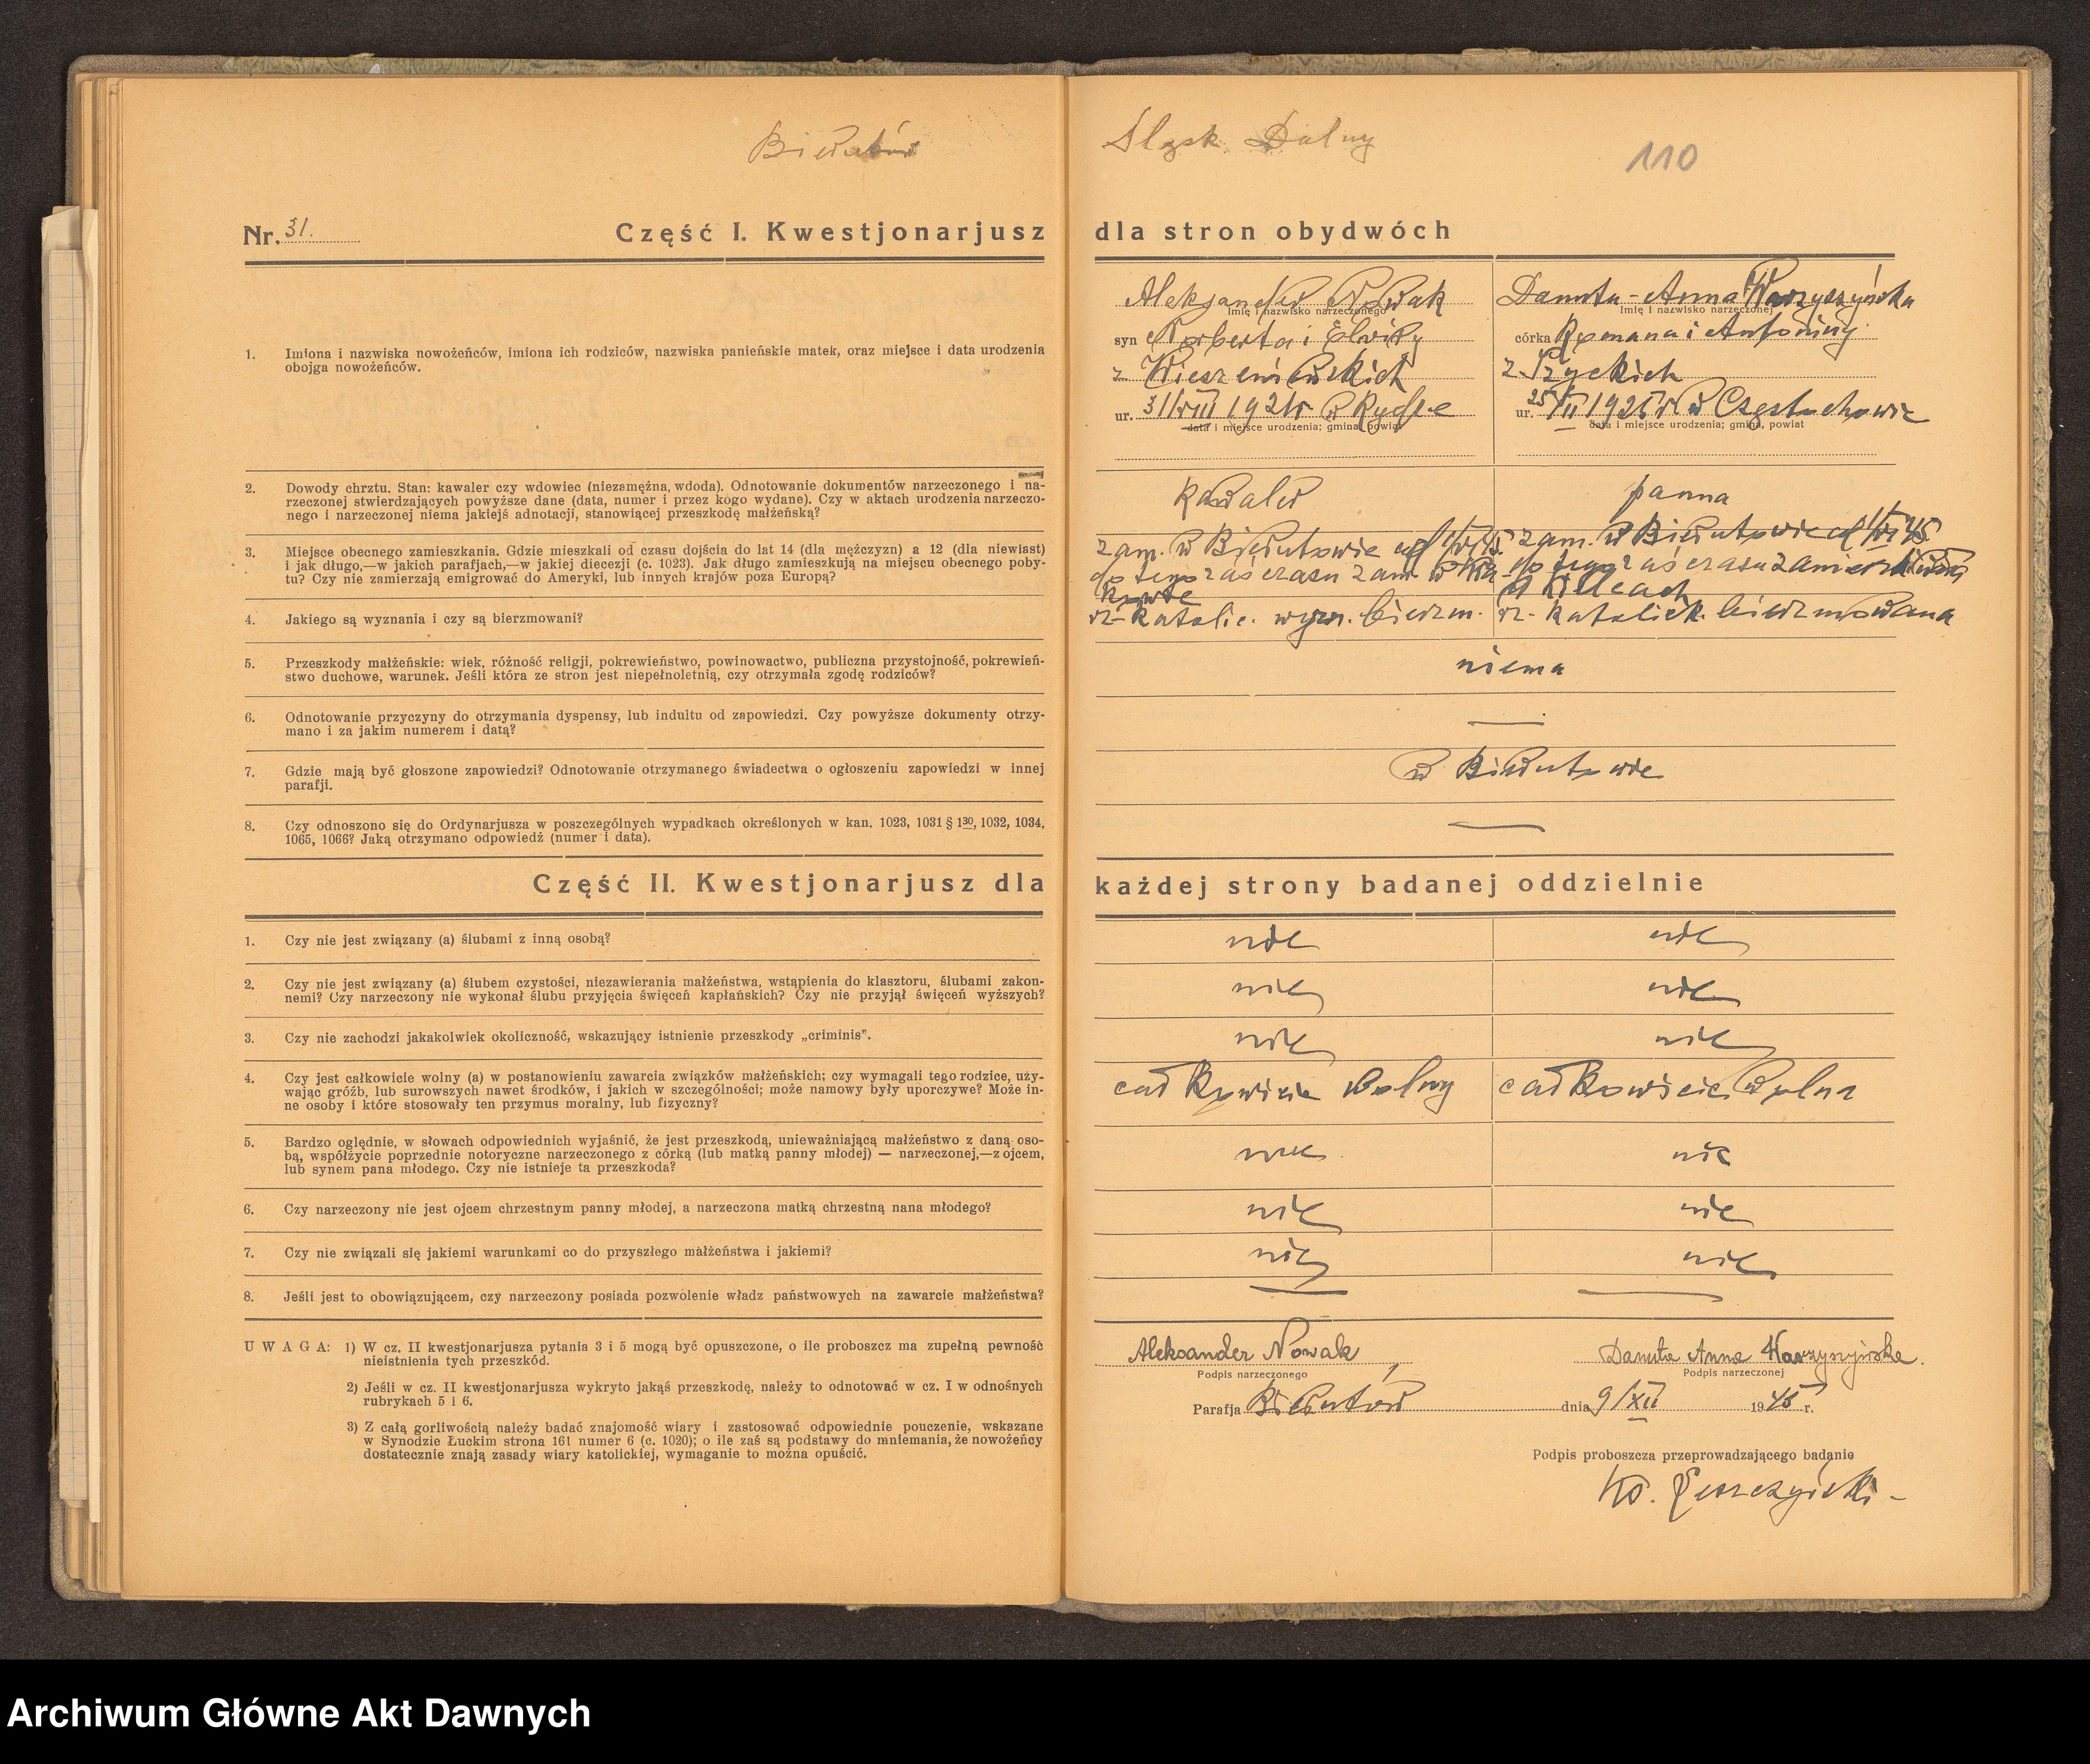 Bierutów
Śląsk Dolny
110
Nr. 31. Część I. Kwestjonarjusz dla stron obydwóch
1. Imiona i nazwiska nowożeńców, imiona ich rodziców, nazwiska panieńskie matek, oraz miejsce i data urodzenia
obojga nowożeńców.
Aleksander Nowak
Imię i nazwisko narzeczonego
syn Norberta i Elwiry
z
ur. 31/VIII 192 w Rydze
data i miejsce urodzenia; gmina, powiat
Danuta-Anna
Imię i nazwisko narzeczonej
córka Romana i Antoniny
z
ur. 25/ 1925 r w Częstochowie
data i miejsce urodzenia; gmina, powiat
2. Dowody chrztu. Stan: kawaler czy wdowiec (niezamężna, wdoda). Odnotowanie dokumentów narzeczonego i na-
rzeczonej stwierdzających powyższe dane (data, numer i przez kogo wydane). Czy w aktach urodzenia narzeczo-
nego i narzeczonej niema jakiejś adnotacji, stanowiącej przeszkodę małżeńską?
kawaler
panna
3. Miejsce obecnego zamieszkania. Gdzie mieszkali od czasu dojścia do lat 14 (dla mężczyzn) a 12 (dla niewiast)
i jak długo,—w jakich parafjach,—w jakiej diecezji (c. 1023). Jak długo zamieszkują na miejscu obecnego poby-
tu? Czy nie zamierzają emigrować do Ameryki, lub innych krajów poza Europą?
zam. w Bierutowie od
do tego zaś czasu zam. w Kra-
kowie
zam. w Bierutowie od 1/VI 45
do tego zaś czasu
w Kielcach
4. Jakiego są wyznania i czy są bierzmowani?
rz-katolic. wyzn. bierzm.
rz-katolick. bierzmowana
5. Przeszkody małżeńskie: wiek, różność religji, pokrewieństwo, powinowactwo, publiczna przystojność, pokrewień-
stwo duchowe, warunek. Jeśli która ze stron jest niepełnoletnią, czy otrzymała zgodę rodziców?
niema
6. Odnotowanie przyczyny do otrzymania dyspensy, lub induitu od zapowiedzi. Czy powyższe dokumenty otrzy-
mano i za jakim numerem i datą?
—
7. Gdzie mają być głoszone zapowiedzi? Odnotowanie otrzymanego świadectwa o ogłoszeniu zapowiedzi w innej
parafji.
w Bierutowie
8. Czy odnoszono się do Ordynarjusza w poszczególnych wypadkach określonych w kan. 1023, 1031 § 1³⁰, 1032, 1034,
1065, 1066? Jaką otrzymano odpowiedź (numer i data).
—
Część II. Kwestjonarjusz dla każdej strony badanej oddzielnie
1. Czy nie jest związany (a) ślubami z inną osobą?
nie
nie
2. Czy nie jest związany (a) ślubem czystości, niezawierania małżeństwa, wstąpienia do klasztoru, ślubami zakon-
nemi? Czy narzeczony nie wykonał ślubu przyjęcia święceń kapłańskich? Czy nie przyjął święceń wyższych?
nie
nie
3. Czy nie zachodzi jakakolwiek okoliczność, wskazujący istnienie przeszkody „criminis".
nie
nie
4. Czy jest całkowicie wolny (a) w postanowieniu zawarcia związków małżeńskich; czy wymagali tego rodzice, uży-
wając gróźb, lub surowszych nawet środków, i jakich w szczególności; może namowy były uporczywe? Może in-
ne osoby i które stosowały ten przymus moralny, lub fizyczny?
całkowicie wolny
całkowicie wolna
5. Bardzo oględnie, w słowach odpowiednich wyjaśnić, że jest przeszkodą, unieważniającą małżeństwo z daną oso-
bą, współżycie poprzednie notoryczne narzeczonego z córką (lub matką panny młodej) — narzeczonej,—z ojcem,
lub synem pana młodego. Czy nie istnieje ta przeszkoda?
nie
nie
6. Czy narzeczony nie jest ojcem chrzestnym panny młodej, a narzeczona matką chrzestną nana młodego?
nie
nie
7. Czy nie związali się jakiemi warunkami co do przyszłego małżeństwa i jakiemi?
nie
nie
8. Jeśli jest to obowiązującem, czy narzeczony posiada pozwolenie władz państwowych na zawarcie małżeństwa?
—
—
UWAGA: 1) W cz. II kwestjonarjusza pytania 3 i 5 mogą być opuszczone, o ile proboszcz ma zupełną pewność
nieistnienia tych przeszkód.
2) Jeśli w cz. II kwestjonarjusza wykryto jakąś przeszkodę, należy to odnotować w cz. I w odnośnych
rubrykach 5 i 6.
3) Z całą gorliwością należy badać znajomość wiary i zastosować odpowiednie pouczenie, wskazane
w Synodzie Łuckim strona 161 numer 6 (c. 1020); o ile zaś są podstawy do mniemania, że nowożeńcy
dostatecznie znają zasady wiary katolickiej, wymaganie to można opuścić.
Aleksander Nowak
Podpis narzeczonego
Danuta Anna
Podpis narzeczonej
Parafja Bierutów dnia 9/XII 1945 r.
Podpis proboszcza przeprowadzającego badanie
Ks.
Archiwum Główne Akt Dawnych